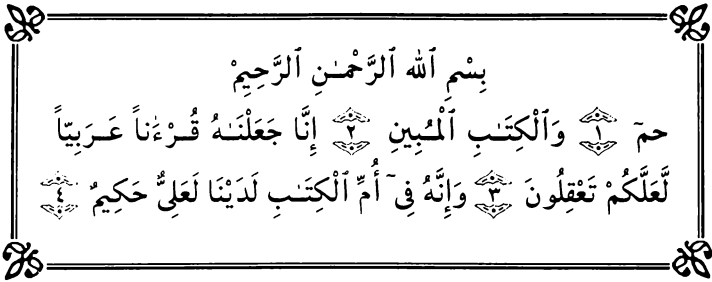 بِسْمِ ٱللهِ ٱلرَّحْمَـٰنِ ٱلرَّحِيمِْ
حمۤ ﴿١﴾ وَٱلْكِتَـٰبِ ٱلْمُبِينِ ﴿٢﴾ إِنَّا جَعَلْنَـٰهُ قُرْءَٰناً عَرَبِيّاً
لَّعَلَّكُمْ تَعْقِلُونَ ﴿٣﴾ وَإِنَّهُ فِىۤ أُمِّ ٱلْكِتَـٰبِ لَدَيْنَا لَعَلِىٌّ حَكِيمٌ ﴿٤﴾